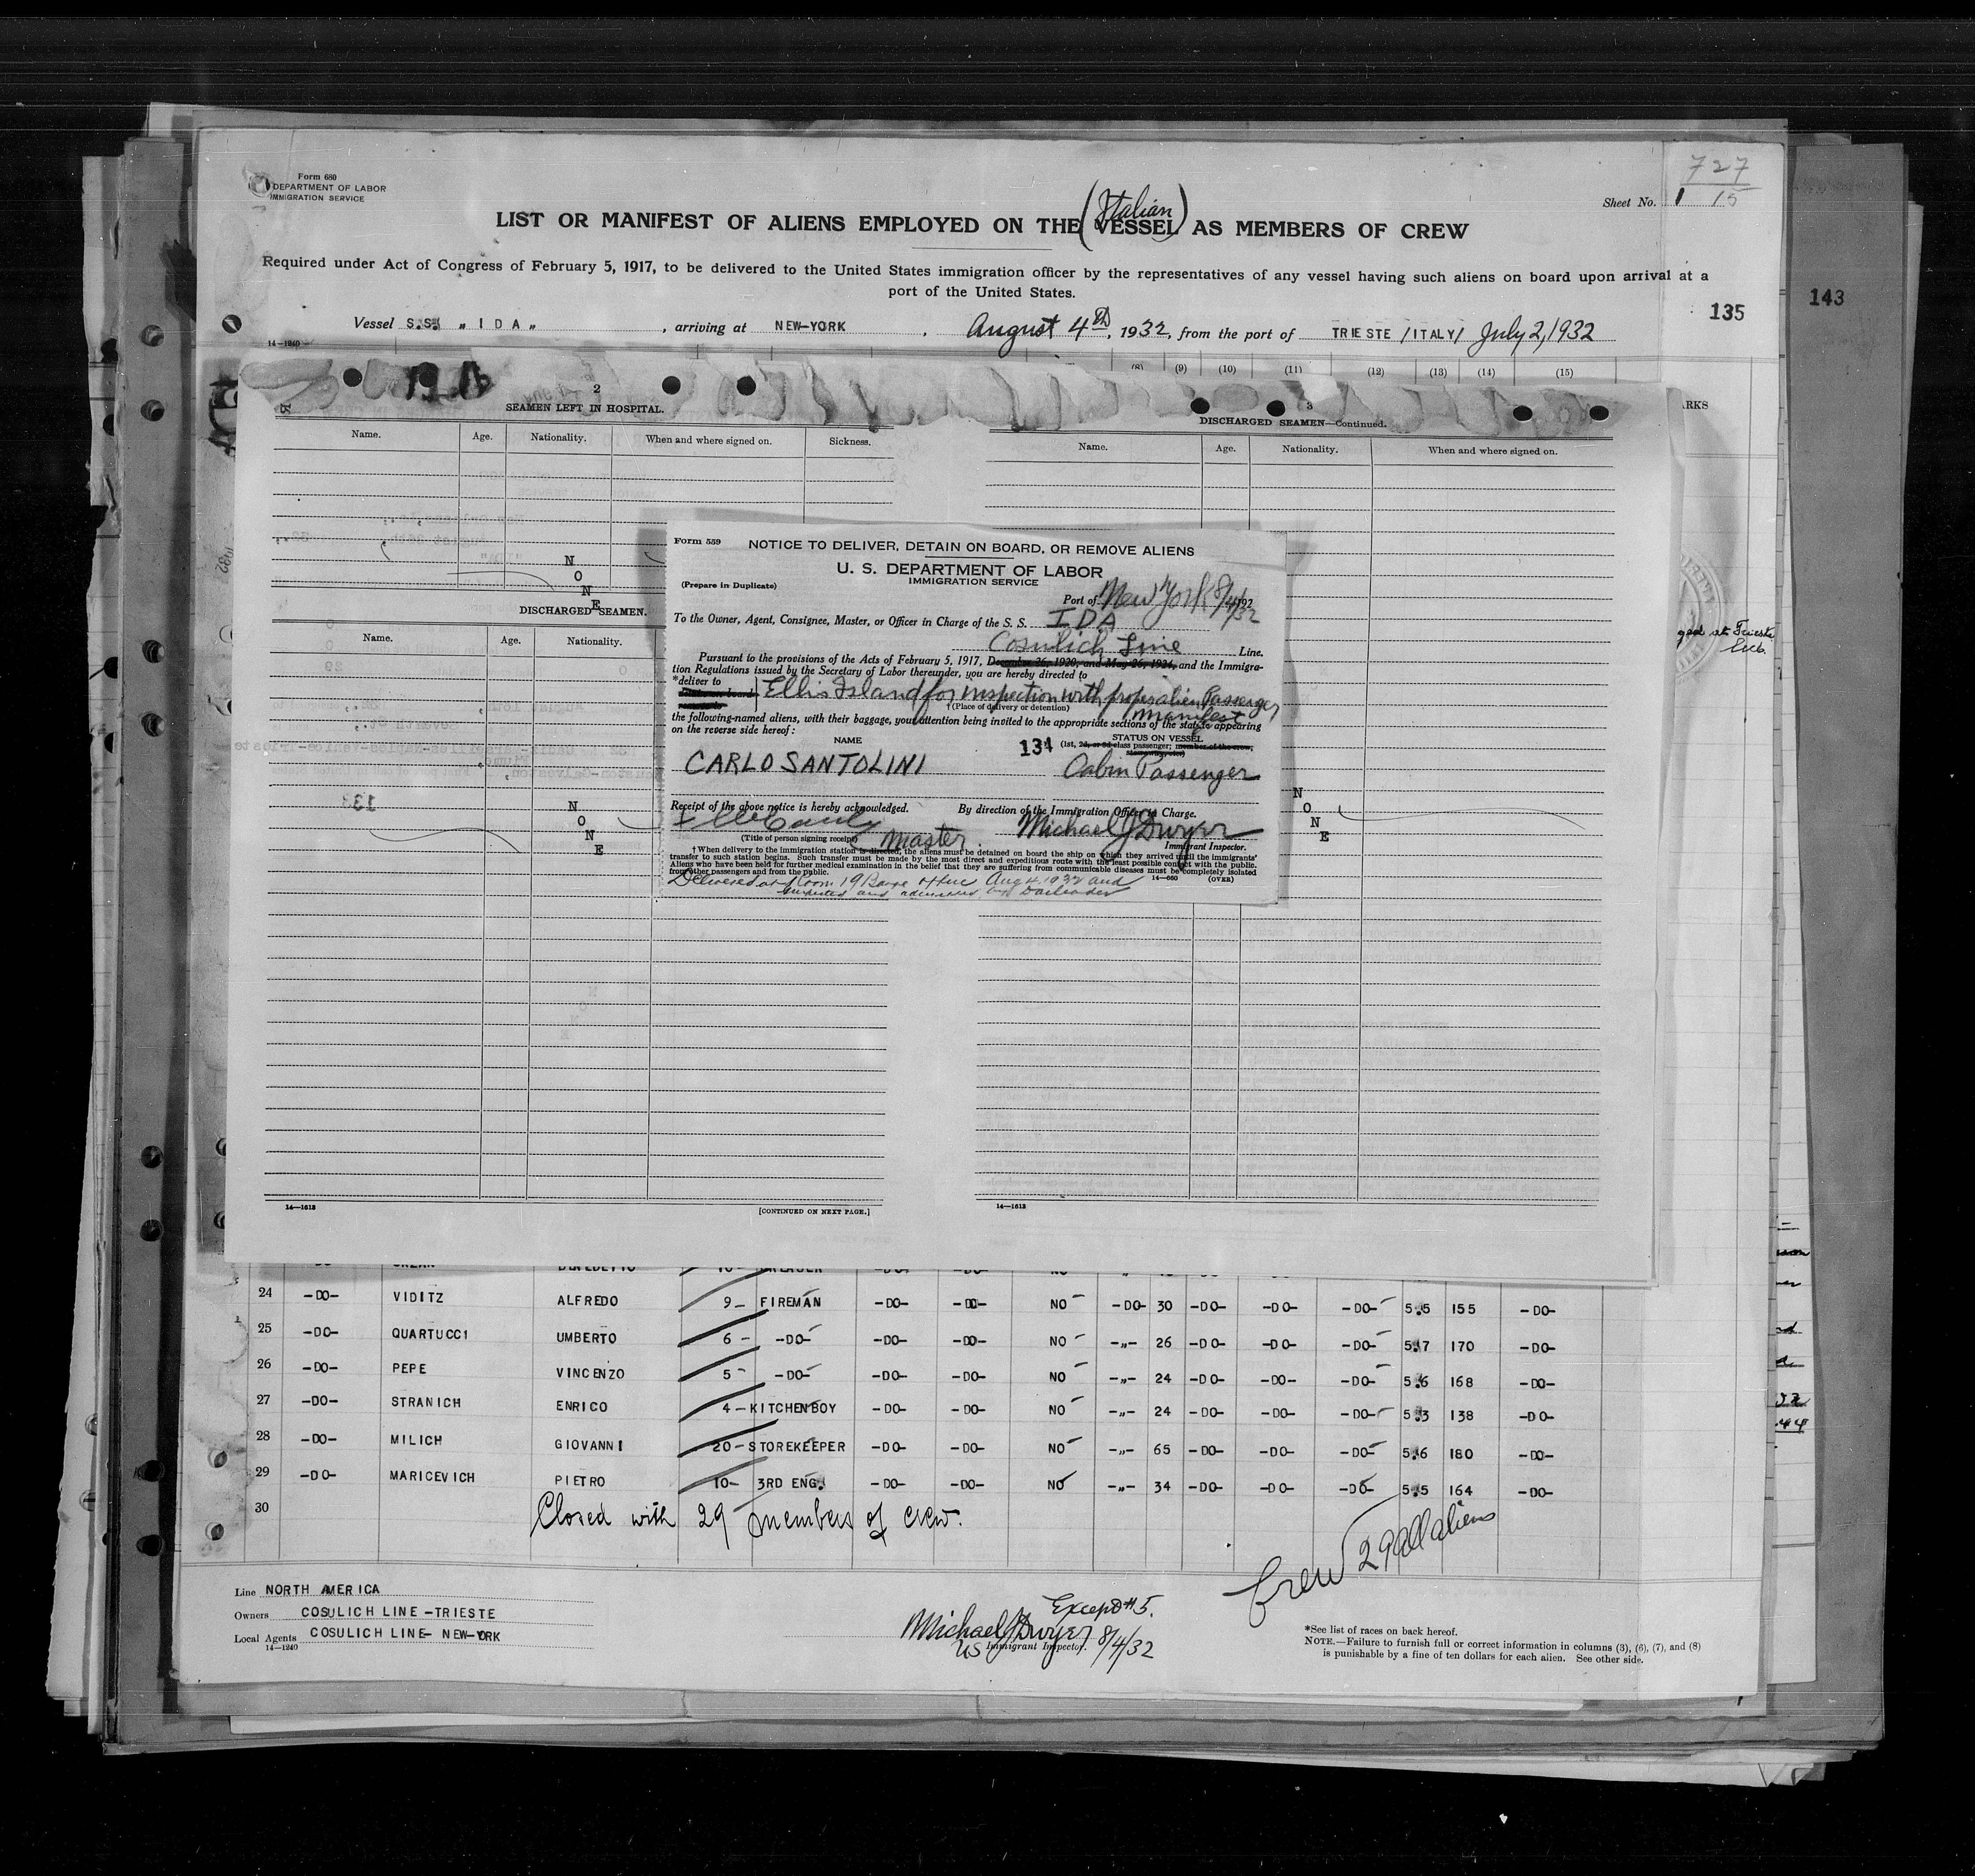 Form 680
DEPARTMENT OF LABOR
IMMIGRATION SERVICE
727
Sheet No. 1 15
LIST OR MANIFEST OF ALIENS EMPLOYED ON THE (Italian) VESSEL AS MEMBERS OF CREW
Required under Act of Congress of February 5, 1917, to be delivered to the United States immigration officer by the representatives of any vessel having such aliens on board upon arrival at a
port of the United States.
135
143
Vessel S.S. „ I D A „ , arriving at NEW-YORK , August 4th, 1932, from the port of TRIESTE /ITALY/ July 2, 1932
14—1240
(8) (9) (10) (11) (12) (13) (14) (15)
2
SEAMEN LEFT IN HOSPITAL.
Name. Age. Nationality. When and where signed on. Sickness.
NONE
DISCHARGED SEAMEN.
Name. Age. Nationality.
NONE
14—1613
[CONTINUED ON NEXT PAGE.]
3
DISCHARGED SEAMEN—Continued.
Name. Age. Nationality. When and where signed on.
NONE
14—1613
at Trieste
Form 559
NOTICE TO DELIVER, DETAIN ON BOARD, OR REMOVE ALIENS
U. S. DEPARTMENT OF LABOR
IMMIGRATION SERVICE
(Prepare in Duplicate)
Port of New York 8/4/32
To the Owner, Agent, Consignee, Master, or Officer in Charge of the S. S. IDA
Cosulich Line Line.
Pursuant to the provisions of the Acts of February 5, 1917, December 26, 1920, and May 26, 1924, and the Immigra-
tion Regulations issued by the Secretary of Labor thereunder, you are hereby directed to
*deliver to
Ellis Island for inspection with proper alien Passenger
manifest
†(Place of delivery or detention)
the following-named aliens, with their baggage, your attention being invited to the appropriate sections of the statute appearing
on the reverse side hereof:
NAME
134
STATUS ON VESSEL
(1st, 2d, or 3d class passenger; member of the crew,
stowaway, etc.)
CARLO SANTOLINI
Cabin Passenger
Receipt of the above notice is hereby acknowledged.
By direction of the Immigration Officer in Charge.
Michael J Dwyer
(Title of person signing receipt) Master.
Immigrant Inspector.
†When delivery to the immigration station is directed, the aliens must be detained on board the ship on which they arrived until the immigrants'
transfer to such station begins. Such transfer must be made by the most direct and expeditious route with the least possible contact with the public.
Aliens who have been held for further medical examination in the belief that they are suffering from communicable diseases must be completely isolated
from other passengers and from the public.
14—660 (OVER)
Delivered at Room 19 Barge Office Aug 4 1932 and
inspected and admitted by
24 —DO— VIDITZ ALFREDO 9— FIREMAN —DO— —DO— NO —DO— 30 —DO— —DO— —DO— 5.5 155 —DO—
25 —DO— QUARTUCCI UMBERTO 6— —DO— —DO— —DO— NO —„— 26 —DO— —DO— —DO— 5.7 170 —DO—
26 —DO— PEPE VINCENZO 5— —DO— —DO— —DO— NO —„— 24 —DO— —DO— —DO— 5.6 168 —DO—
27 —DO— STRANICH ENRICO 4— KITCHENBOY —DO— —DO— NO —„— 24 —DO— —DO— —DO— 5.3 138 —DO—
28 —DO— MILICH GIOVANNI 20— STOREKEEPER —DO— —DO— NO —„— 65 —DO— —DO— —DO— 5.6 180 —DO—
29 —DO— MARICEVICH PIETRO 10— 3RD ENG. —DO— —DO— NO —„— 34 —DO— —DO— —DO— 5.5 164 —DO—
30 Closed with 29 members of crew.
Crew 29 all aliens
Line NORTH AMERICA
Owners COSULICH LINE —TRIESTE
Local Agents COSULICH LINE— NEW—YORK
14—1240
Except #5.
Michael J Dwyer
US Immigrant Inspector. 8/4/32
*See list of races on back hereof.
NOTE.—Failure to furnish full or correct information in columns (3), (6), (7), and (8)
is punishable by a fine of ten dollars for each alien. See other side.